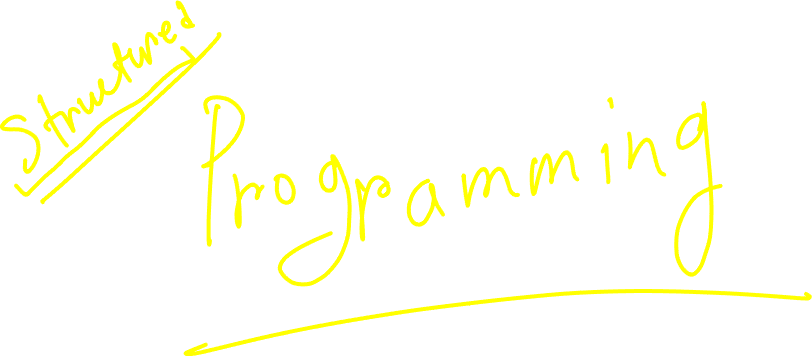 Structured
Programming